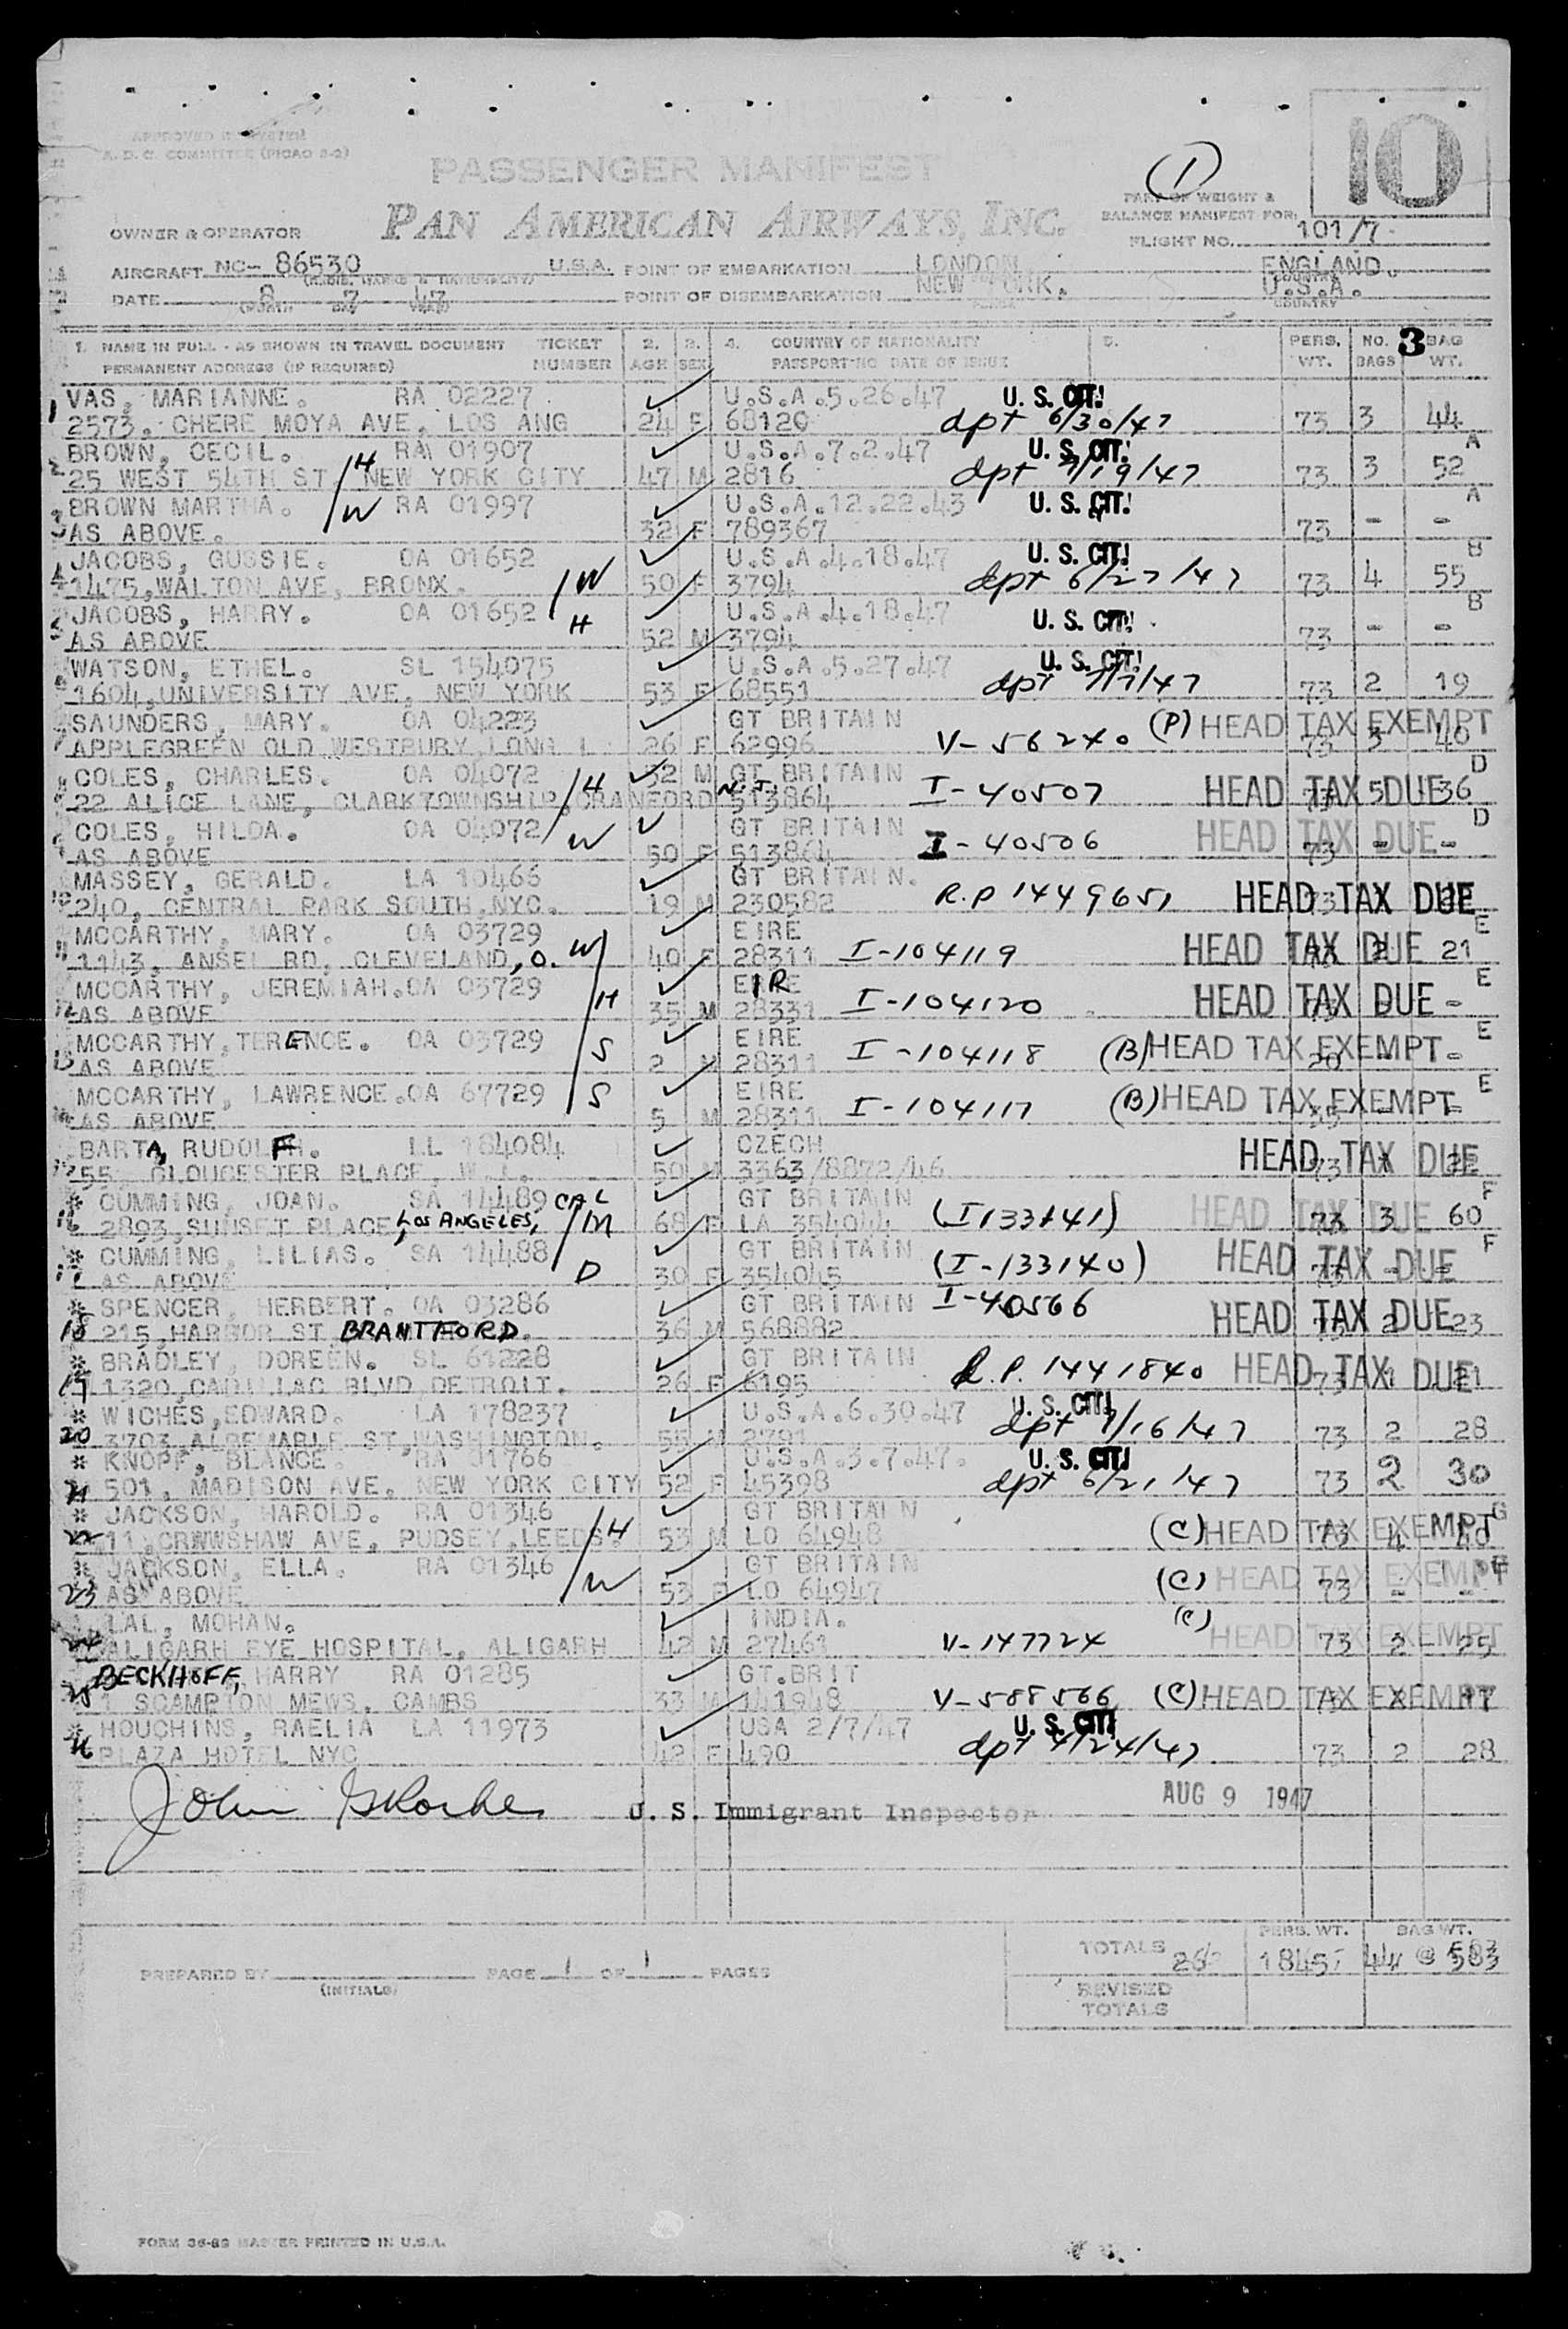 APPROVED BY SYSTEM
A.D.C. COMMITTEE (PICAO 8-2)
PASSENGER MANIFEST
(1)
10
PART OF WEIGHT &
BALANCE MANIFEST FOR:
OWNER & OPERATOR PAN AMERICAN AIRWAYS, INC. FLIGHT NO. 101/7
AIRCRAFT NC- 86530 U.S.A. POINT OF EMBARKATION LONDON ENGLAND.
DATE 8 7 47 POINT OF DISEMBARKATION NEW YORK. U.S.A.
(MONTH DAY YEAR) COUNTRY
1. NAME IN FULL - AS SHOWN IN TRAVEL DOCUMENT TICKET 2. 3. 4. COUNTRY OF NATIONALITY 5. PERS. NO. 3 BAG
PERMANENT ADDRESS (IF REQUIRED) NUMBER AGE SEX PASSPORT-NO DATE OF ISSUE WT. BAGS WT.
VAS, MARIANNE. RA 02227 U.S.A.5.26.47 U. S. CIT!
1 2573, CHERE MOYA AVE, LOS ANG 24 F 68120 dpt 6/30/47 73 3 44
BROWN, CECIL. RA 01907 U.S.A.7.2.47 U. S. CIT! A
2 25 WEST 54TH ST, NEW YORK CITY /H 47 M 2816 dpt 7/19/47 73 3 52
BROWN MARTHA. /W RA 01997 U.S.A.12.22.43 U. S. CIT! A
3 AS ABOVE. 32 F 789367 73 - -
JACOBS, GUSSIE. OA 01652 U.S.A.4.18.47 U. S. CIT! B
4 1475,WALTON AVE, BRONX. /W 50 F 3794 dpt 6/27/47 73 4 55
JACOBS, HARRY. OA 01652 H U.S.A.4.18.47 U. S. CIT! B
5 AS ABOVE 52 M 3794 73 - -
WATSON, ETHEL. SL 154075 U.S.A.5.27.47 U. S. CIT!
1604,UNIVERSITY AVE, NEW YORK 53 F 68551 dpt 7/7/47 73 2 19
SAUNDERS, MARY. OA 04223 GT BRITAIN (P) HEAD TAX EXEMPT
APPLEGREEN OLD WESTBURY LONG I 26 F 62996 V-56240 73 3 40
COLES, CHARLES. OA 04072 /H 52 M GT BRITAIN D
22 ALICE LANE, CLARKTOWNSHIP,CRANFORD N.J. 513864 I-40507 HEAD TAX DUE 73 5 36
COLES, HILDA. OA 04072 /W GT BRITAIN HEAD TAX DUE D
AS ABOVE 50 F 513864 I-40506 73 - -
MASSEY, GERALD. LA 10466 GT BRITAIN.
10 240, CENTRAL PARK SOUTH,NYC. 19 M 230582 R.P 1449651 HEAD TAX DUE 73
MCCARTHY, MARY. OA 03729 EIRE E
11 1143, ANSEL RD, CLEVELAND, O. W/ 40 F 28311 I-104119 HEAD TAX DUE 73 2 21
MCCARTHY, JEREMIAH.OA 03729 EIRE IR E
12 AS ABOVE /H 35 M 28331 I-104120 HEAD TAX DUE 73 - -
MCCARTHY,TERENCE. OA 03729 EIRE E
13 AS ABOVE /S 2 M 28311 I-104118 (B) HEAD TAX EXEMPT 20 - -
MCCARTHY, LAWRENCE.OA 67729 EIRE E
14 AS ABOVE /S 5 M 28311 I-104117 (B) HEAD TAX EXEMPT 35 - -
BARTA, RUDOLF. LL 184084 CZECH
55, GLOUCESTER PLACE, W.1. 50 M 3363/8872/46 HEAD TAX DUE 73
* CUMMING, JOAN. SA 14489 CAL GT BRITAIN F
16 2893,SUNSET PLACE, LOS ANGELES, /M 68 F LA 354044 (I133141) HEAD TAX DUE 73 3 60
* CUMMING, LILIAS. SA 14488 GT BRITAIN F
17 AS ABOVE D 30 F 354045 (I-133140) HEAD TAX DUE 73 - -
* SPENCER, HERBERT. OA 03286 GT BRITAIN I-40566
18 215,HARBOR ST BRANTFORD. 36 M 568882 HEAD TAX DUE 73 2 23
* BRADLEY, DOREEN. SL 61228 GT BRITAIN
19 1320,CADILLAC BLVD DETROIT. 26 F 6195 R.P. 1441840 HEAD TAX DUE 73 1 21
* WICHES,EDWARD. LA 178237 U.S.A.6.30.47 U. S. CIT!
20 3703,ALBEMARLE ST,WASHINGTON. 55 M 2791 dpt 7/16/47 73 2 28
* KNOPF, BLANCE. RA 01766 U.S.A.3.7.47. U. S. CIT!
21 501, MADISON AVE. NEW YORK CITY 52 F 45398 dpt 6/21/47 73 2 30
* JACKSON, HAROLD. RA 01346 GT BRITAIN G
22 11,CRNWSHAW AVE, PUDSEY,LEEDS. /H 53 M LO 64948 (C) HEAD TAX EXEMPT 73 4 40
* JACKSON, ELLA. RA 01346 GT BRITAIN G
23 AS ABOVE /W 53 F LO 64947 (C) HEAD TAX EXEMPT 73 - -
LAL, MOHAN. INDIA. (C)
24 ALIGARH EYE HOSPITAL, ALIGARH 42 M 27461 V-147724 HEAD TAX EXEMPT 73 2 25
BECKHOFF, HARRY RA 01285 GT.BRIT
25 1 SCAMPTON MEWS, CAMBS 33 M 141948 V-588566 (C) HEAD TAX EXEMPT 73
* HOUCHINS, RAELIA LA 11973 USA 2/7/47 U. S. CIT!
26 PLAZA HOTEL NYC 42 F 490 dpt 4/24/47 73 2 28
John
U. S. Immigrant Inspector AUG 9 1947
PERS. WT. BAG WT.
TOTALS 26 1845 44 @ 583
PREPARED BY PAGE 1 OF 1 PAGES
(INITIALS)
REVISED
TOTALS
FORM 36-82 MASTER PRINTED IN U.S.A.